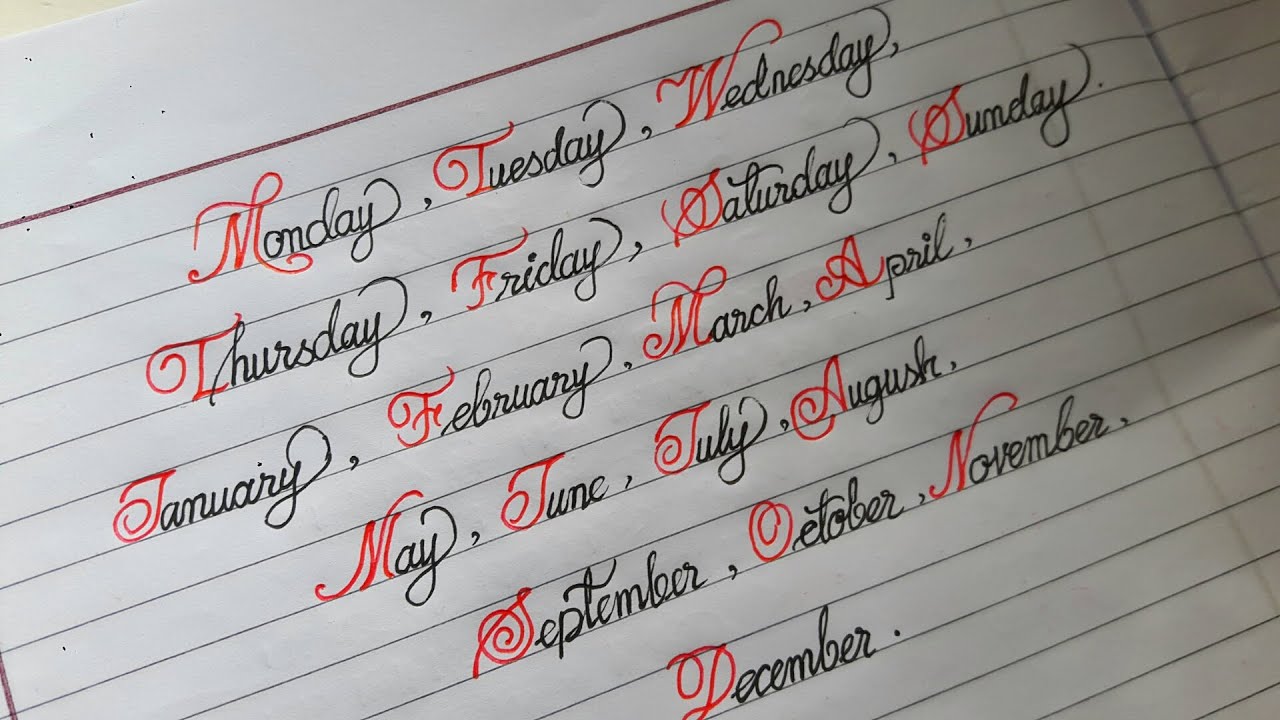 Monday, Tuesday, Wednesday,
Thursday, Friday, Saturday, Sunday.
January, February, March, April,
May, June, July, August,
September, October, November,
December.